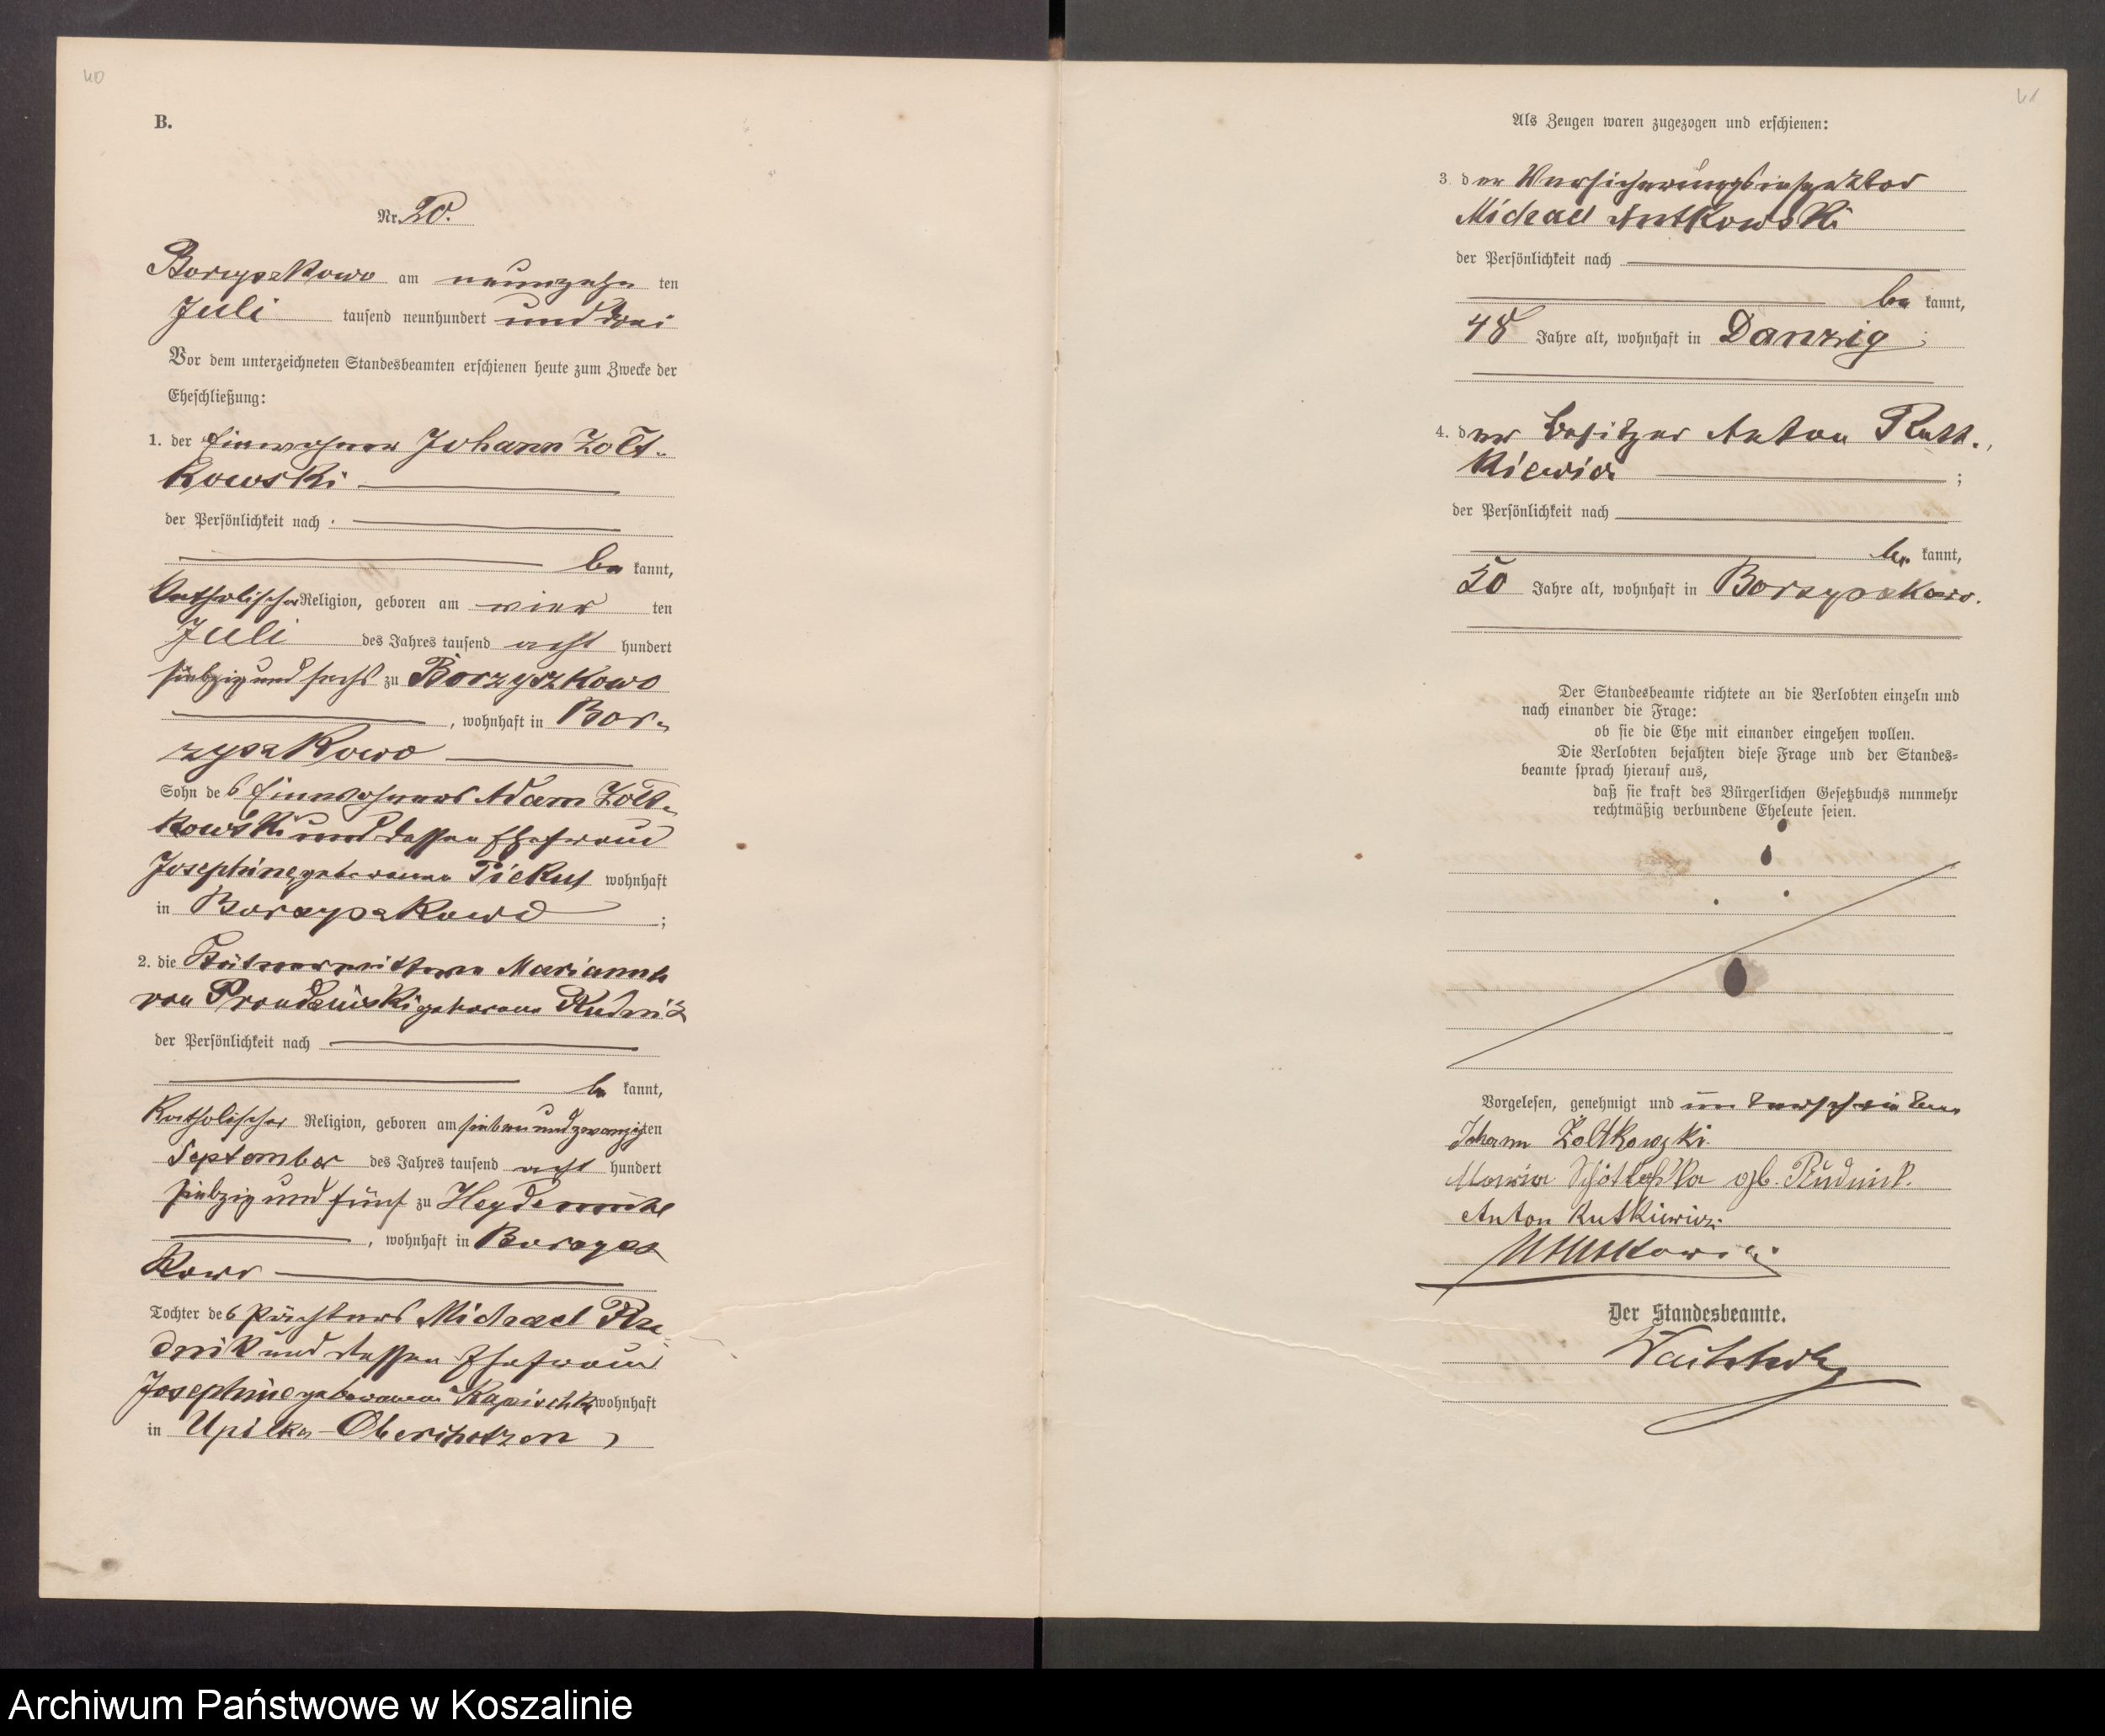 40
B.
Nr. 20.
Borzyszkowo am neunzehn ten
Juli tausend neunhundert und drei
Vor dem unterzeichneten Standesbeamten erschienen heute zum Zwecke der
Eheschließung:
1. der Einwohner Johann Zolt-
kowski
der Persönlichkeit nach
be kannt,
katholischer Religion, geboren am vier ten
Juli des Jahres tausend acht hundert
siebzig und sechs zu Borzyszkowo
, wohnhaft in Bor-
zyszkowo
Sohn des Einwohners Adam Zolt-
kowski und dessen Ehefrau
Josephine geborenen Piekus wohnhaft
in Borzyszkowo ;
2. die Marianna
von geborene Rudnik
der Persönlichkeit nach
be kannt,
katholischer Religion, geboren am sieben und zwanzig ten
September des Jahres tausend acht hundert
siebzig und fünf zu Heydemühl
, wohnhaft in Borzysz
kowo
Tochter des Pächters Michael Ru
dnik und dessen Ehefrau
Josephine geborenen wohnhaft
in Upilka-
41
Als Zeugen waren zugezogen und erschienen:
3. der Versicherungsinspektor
Michael Antkowski
der Persönlichkeit nach
be kannt,
48 Jahre alt, wohnhaft in Danzig ;
4. der Besitzer Anton Rutt-
kiewicz ;
der Persönlichkeit nach
be kannt,
50 Jahre alt, wohnhaft in Borzyszkowo.
Der Standesbeamte richtete an die Verlobten einzeln und
nach einander die Frage:
ob sie die Ehe mit einander eingehen wollen.
Die Verlobten bejahten diese Frage und der Standes=
beamte sprach hierauf aus,
daß sie kraft des Bürgerlichen Gesetzbuchs nunmehr
rechtmäßig verbundene Eheleute seien.
Vorgelesen, genehmigt und unterschrieben
Johann Zoltkowski.
Maria gb. Rudnik.
Anton Rutkiewicz.
Der Standesbeamte.
Archiwum Państwowe w Koszalinie